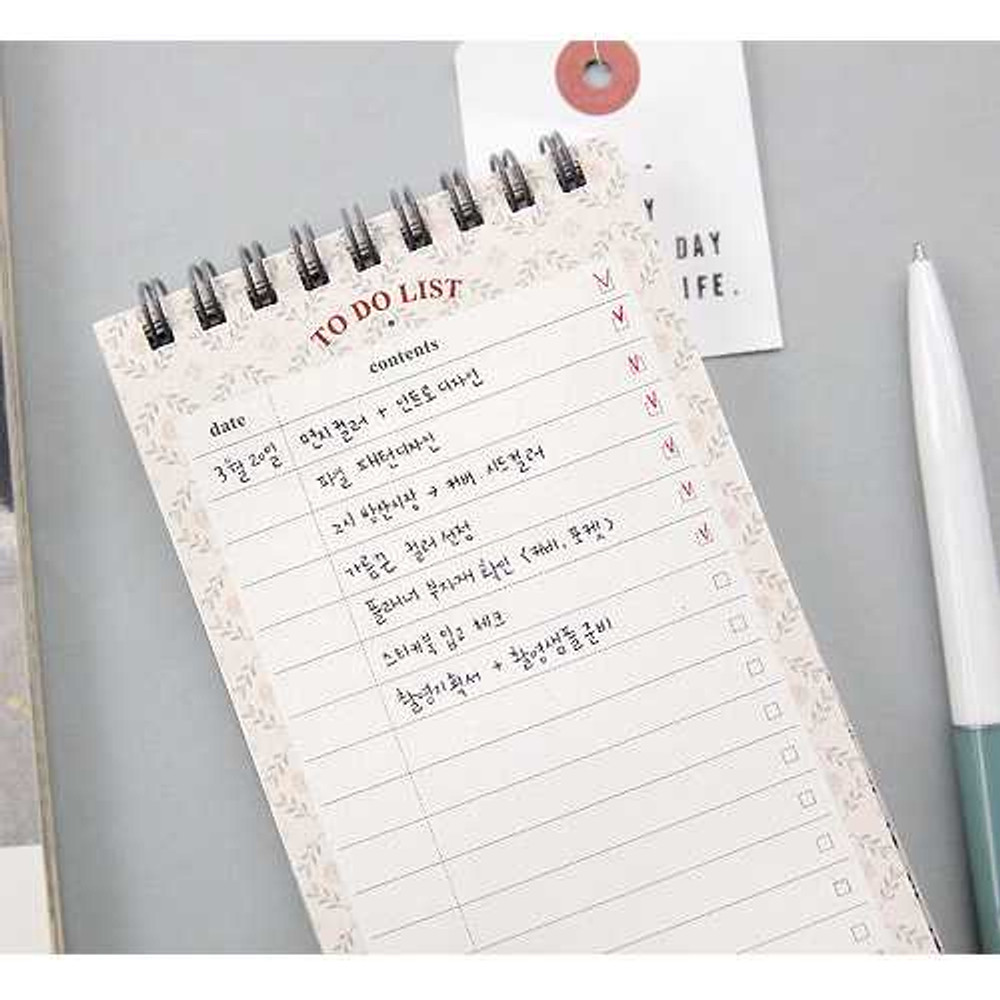 Y
DAY
IFE.
TO DO LIST
contents
date
3월 20일 면지컬러 + 인트로 디자인
파일 패턴디자인
2시 방산시장 → 커버, 시드컬러
가름끈 컬러 선정
플래너 부자재 확인 (커버, 포켓)
스티커북 입고 체크
촬영기획서 + 촬영샘플 준비